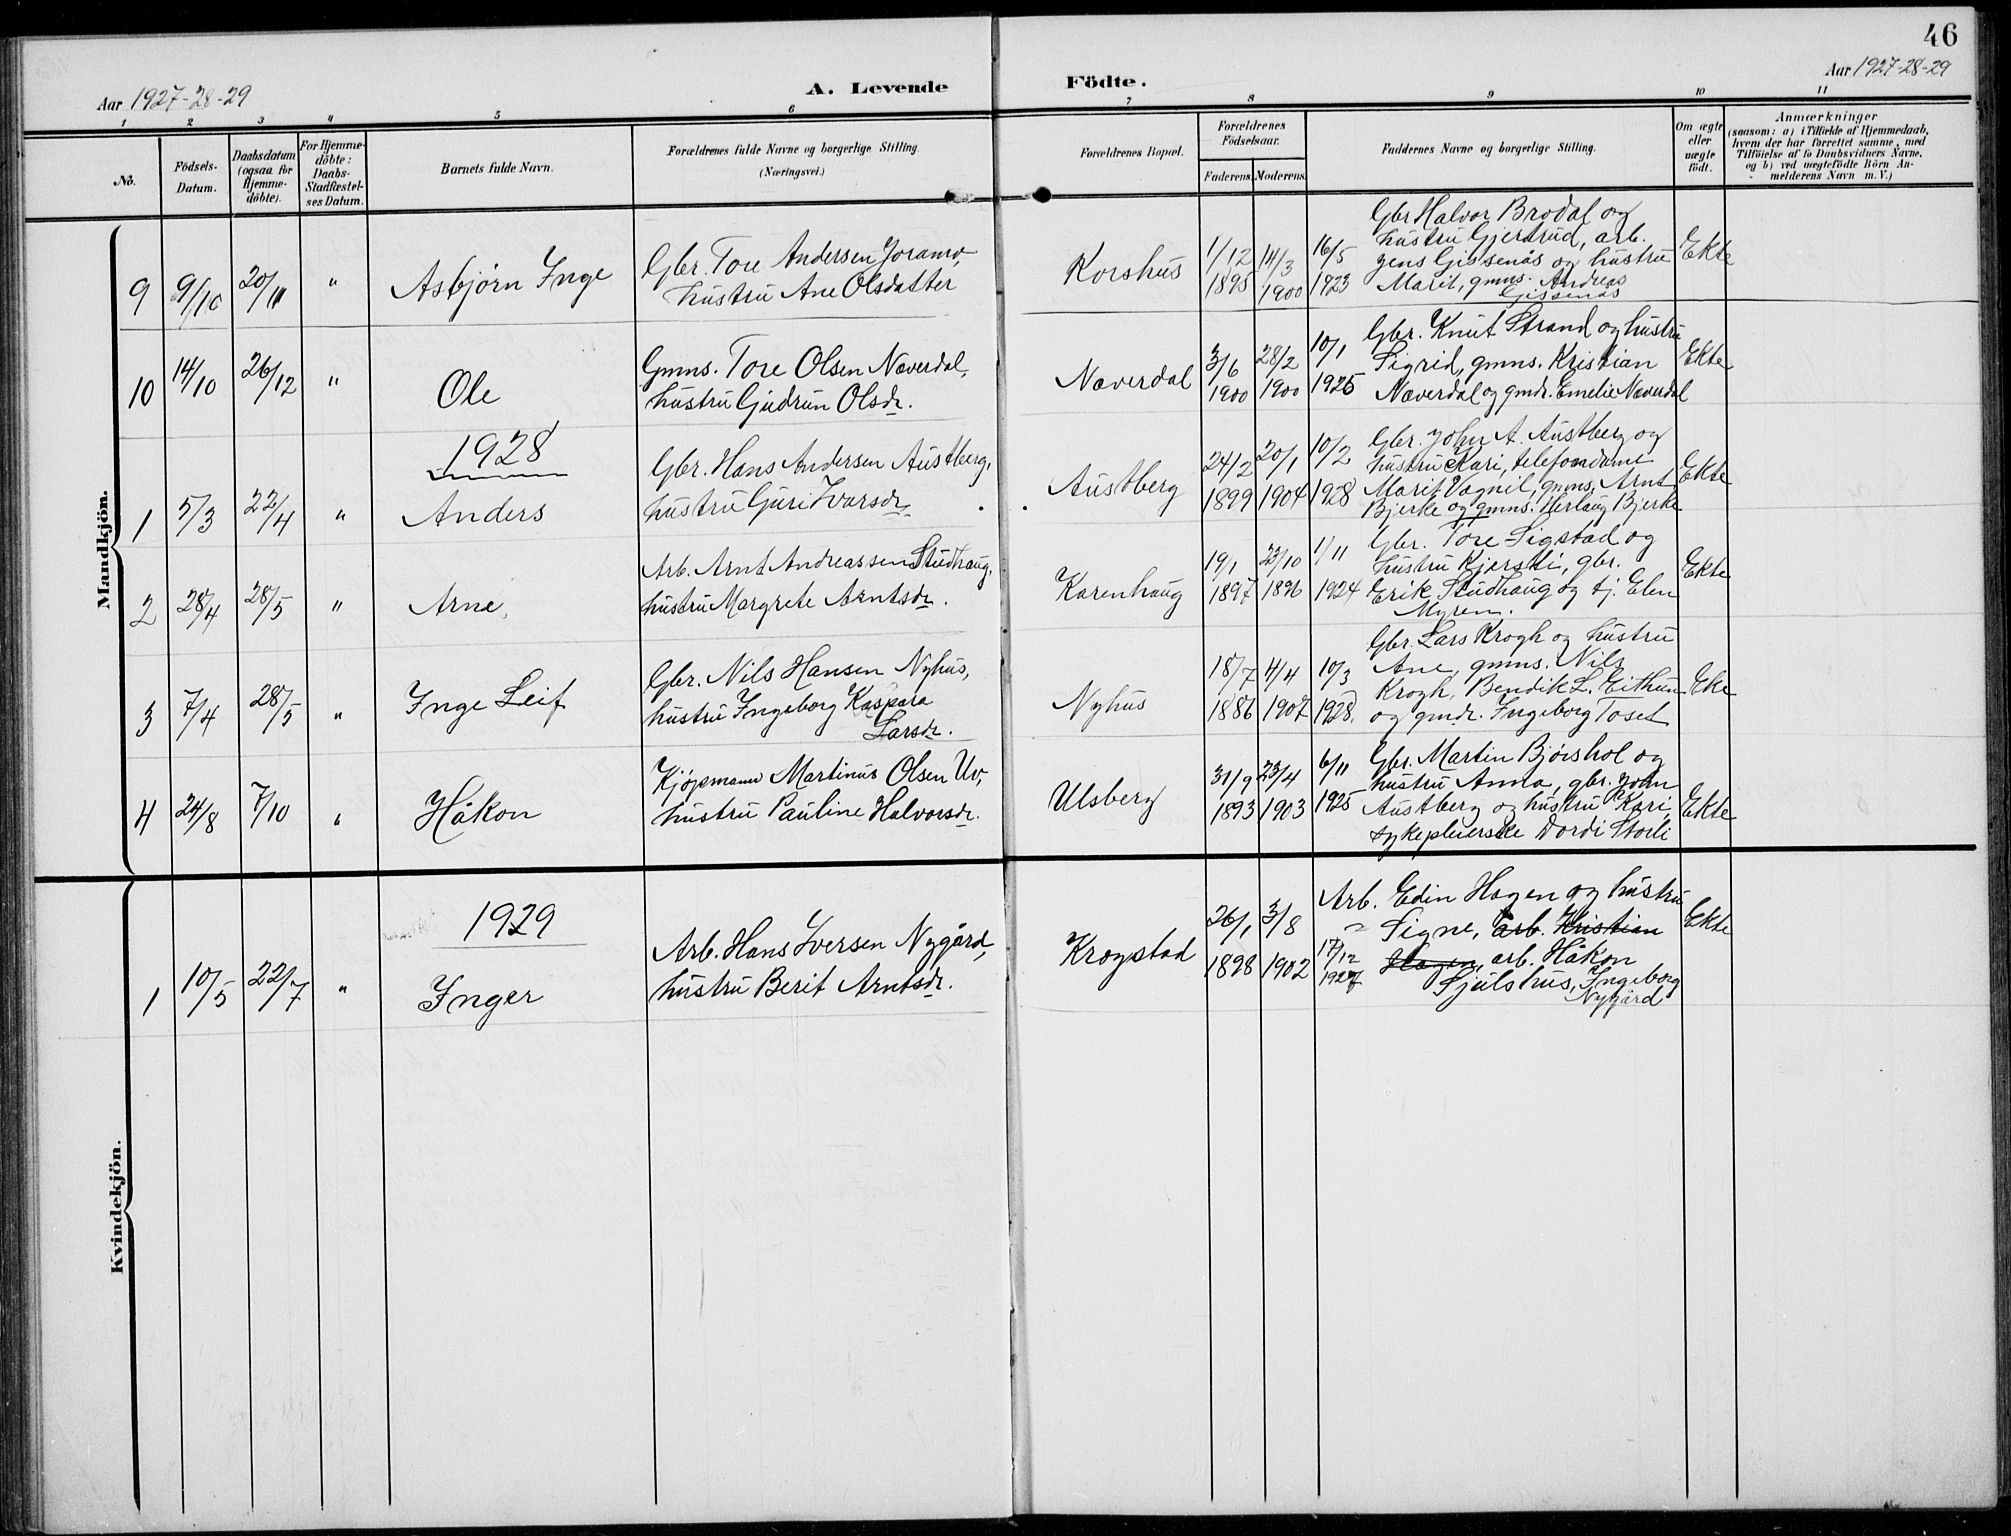 46
Aar 1927-28-29
A. Levende Födte.
Aar 1927-28-29
1 2 3 4 5 6 7 8 9 10 11
No.
Födsels-Datum.
Daabsdatum (ogsaa for Hjemme-döbte).
For Hjemme-döbte: Daabs-Stadfæstel-ses Datum.
Barnets fulde Navn.
Forældrenes fulde Navne og borgerlige Stilling.
(Næringsvei.)
Forældrenes Bopæl.
Forældrenes Födselsaar.
Faderens. Moderens.
Faddernes Navne og borgerlige Stilling.
Om ægte eller uægte födt.
Anmærkninger
(saasom: a) i Tilfælde af Hjemmedaab,
hvem der har forrettet samme, med
Tilföielse af to Daabsvidners Navne,
og b) ved uægtefödte Börn An-
melderens Navn m. V.)
Mandkjön.
9 9/10 20/11 " Asbjørn Inge
Gbr. Tore Andersen Joramo,
hustru Ane Olsdatter
Korshus
1/12 1895 14/3 1900 16/5 1923
Gbr Halvor Brodal og
hustru Gjertrud, arb.
Jens Gissenås og hustru
Marit, gmns. Andreas
Gissenås
Ekte
10 14/10 26/12 " Ole
Gmns. Tore Olsen Næverdal,
hustru Gudrun Olsdr.
Næverdal
3/6 1900 28/2 1900 10/1 1925
Gbr. Knut Strand og hustru
Sigrid, gmns. Kristian
Næverdal og gmdr. Emelie Næverdal
Ekte
1928
1 5/3 22/4 " Anders
Gbr. Hans Andersen Austberg,
hustru Guri Ivarsdr.
Austberg
24/2 1899 20/1 1904 10/2 1928
Gbr. John A. Austberg og
hustru Kari, telefondame
Marit Vognil, gmns. Arnt
Bjerke og gmns. Herlaug Bjerke
Ekte
2 28/4 28/5 " Arne,
Arb. Arnt Andreassen Studhaug,
hustru Margrete Arntsdr.
Karenhaug
19/1 1897 23/10 1896 1/11 1924
Gbr. Tore Sigstad og
hustru Kjersti, gbr.
Erik Studhaug og tj. Elen
Myren.
Ekte
3 7/4 28/5 " Inge Leif
Gbr. Nils Hansen Nyhus,
hustru Ingeborg Kaspara
Larsdr.
Nyhus
18/7 1886 4/4 1907 10/3 1928.
Gbr. Lars Krogh og hustru
Ane, gmns. Nils
Krogh, Bendik L. Eithun
og gmdr. Ingeborg Toset
Eke
4 24/8 7/10 " Håkon
Kjøpmann Martinus Olsen Uv,
hustru Pauline Halvorsdr.
Ulsberg
31/9 1893 23/4 1903 6/11 1925
Gbr. Martin Bjørshol og
hustru Anna, gbr. John
Austberg og hustru Kari,
sykepleierske Dordi Storli
Ekte
Kvindekjön.
1929
1 10/5 22/7 " Inger
Arb. Hans Iversen Nygård,
hustru Berit Arntsdr.
Krogstad
26/1 1898 3/8 1902 17/12 1927
Arb. Edin Hagen og hustru
Signe, arb. Kristian
Hagen, arb. Håkon
Sjulshus, Ingeborg
Nygård
Ekte